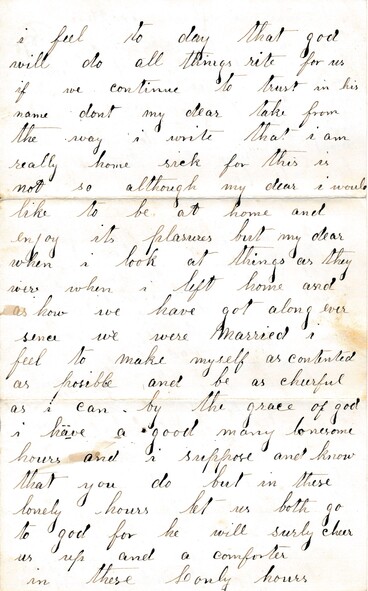 i feel to day that god
will do all things rite for us
if we continue to trust in his
name dont my dear take from
the way i write that i am
really home sick for this is
not so although my dear i would
like to be at home and
enjoy its plasures but my dear
when i look at things as they
were when i left home and
as how we have got along ever
sence we were married i
feel to make myself as contented
as posible and be as cheerful
as i can. by the grace of god
i have a good many lonesome
hours and i suppose and know
that you do but in these
lonely hours let us both go
to god for he will surly cheer
us up and a comforter
in these lonly hours